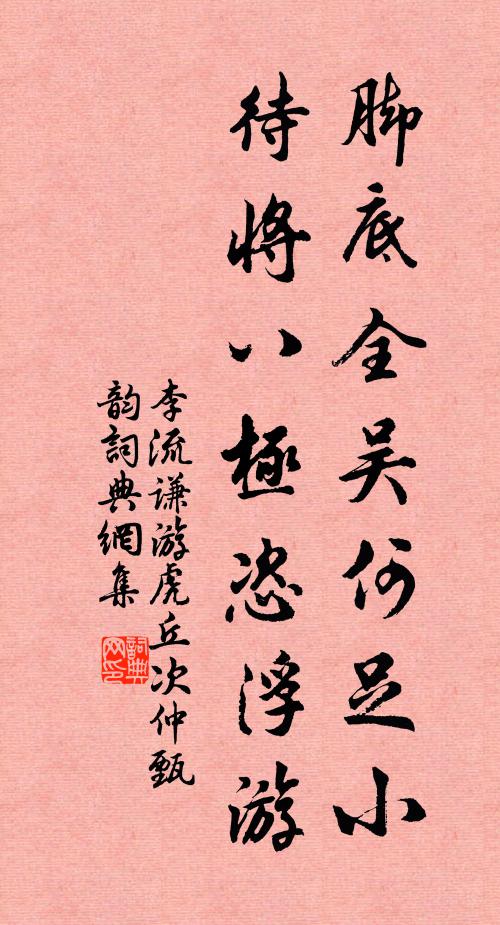 脚底全吴何足小
待將八極恣浮游
李流谦游虎丘次仲甄
韵詞典網集
詞典
网印